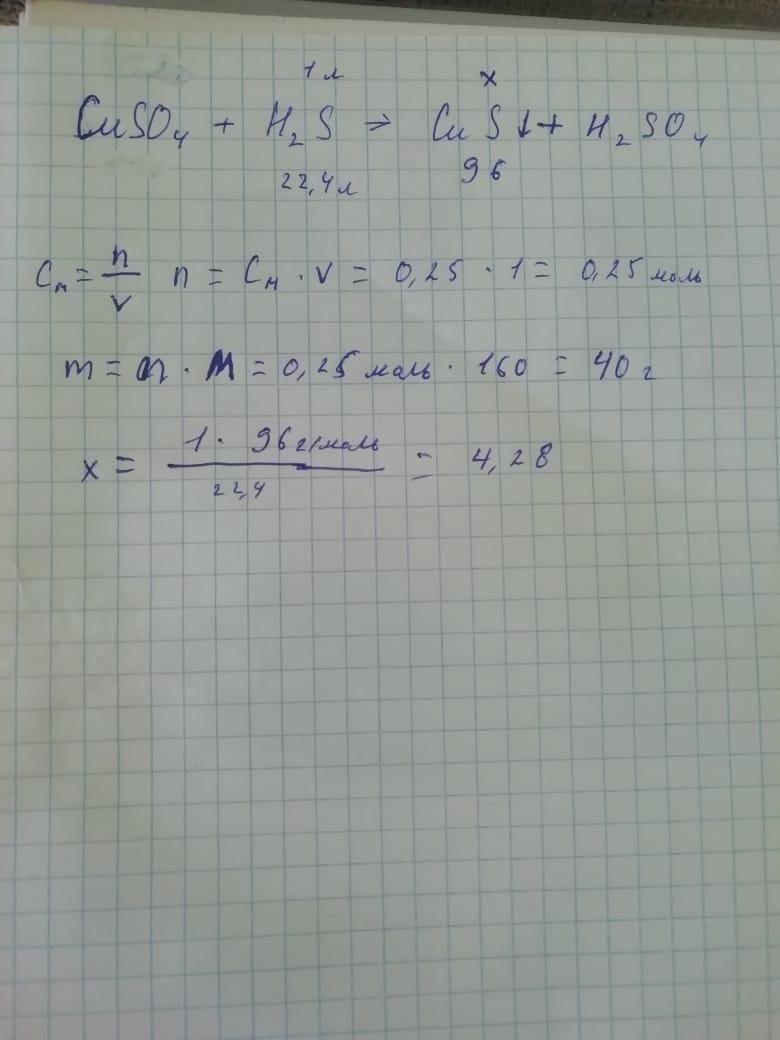 1 л x
CuSO₄ + H₂S → CuS↓ + H₂SO₄
22,4 л 96
Cₘ = n/v n = Cₘ · V = 0,25 · 1 = 0,25 моль
m = n · M = 0,25 моль · 160 = 40 г
x = 1 · 96 г/моль / 22,4 = 4,28